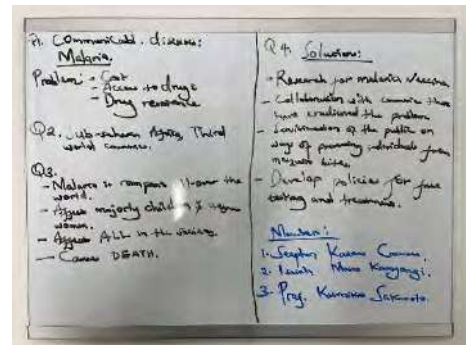 Communicabl. disease:
Malaria.
Problem: - Cost
- Access to drugs
- Drug resistance
Q2. Sub-saharan Africa, Third
world countries.
Q3.
- Malaria is rampant all over the
world.
- Affects majority children &
women.
- Affects ALL in the society.
- Causes DEATH.
Q4. Solutions:
- Research for malaria Vaccine
- Collaboration with countries that
have eradicated the problem
- Sensitization of the public on
ways of preventing individuals from
mosquito bites.
- Develop policies for free
testing and treatment.
Members:
1.
2.
3. Prof.